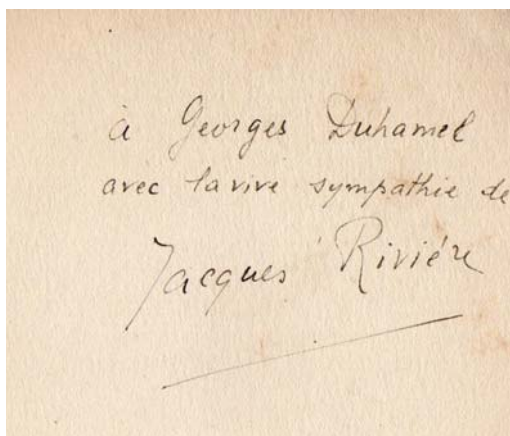 à Georges Duhamel
avec la vive sympathie de
Jacques Rivière